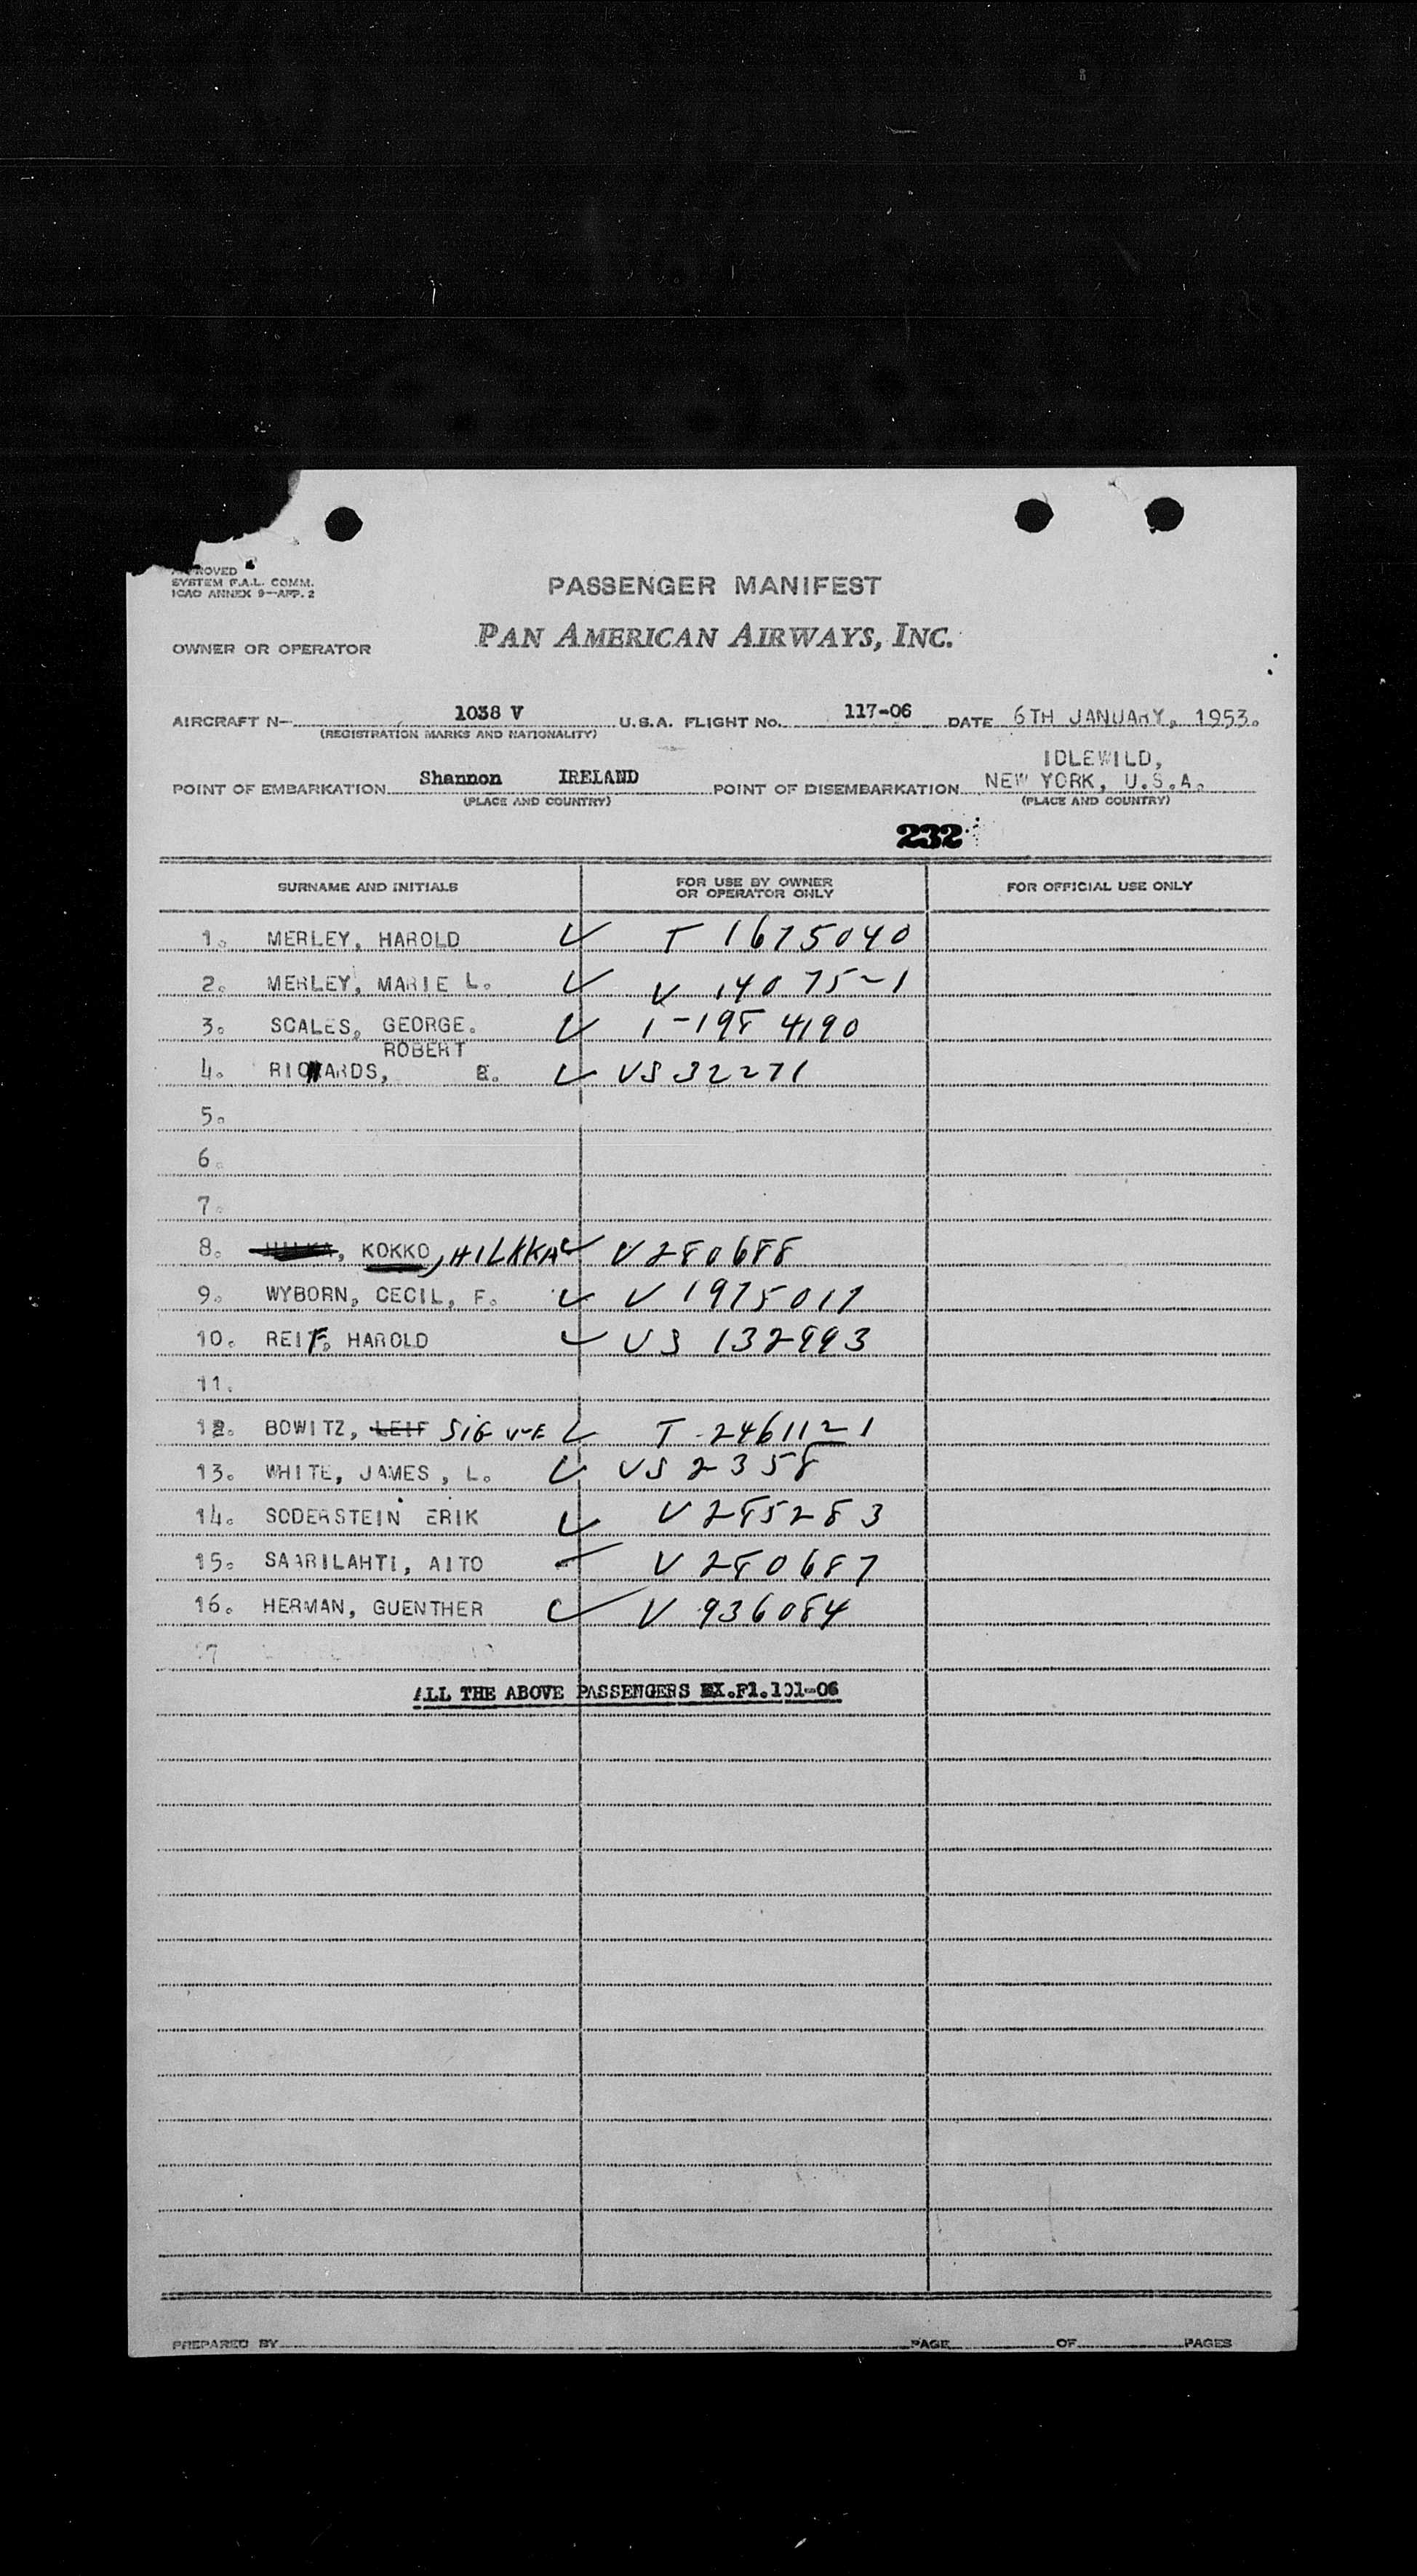 APPROVED
SYSTEM F.A.L. COMM.
ICAO ANNEX 9—APP. 2
PASSENGER MANIFEST
OWNER OR OPERATOR PAN AMERICAN AIRWAYS, INC.
AIRCRAFT N- 1038 V U.S.A. FLIGHT NO. 117-06 DATE 6TH JANUARY, 1953.
(REGISTRATION MARKS AND NATIONALITY)
IDLEWILD,
POINT OF EMBARKATION Shannon IRELAND POINT OF DISEMBARKATION NEW YORK, U.S.A.
(PLACE AND COUNTRY) (PLACE AND COUNTRY)
232
SURNAME AND INITIALS FOR USE BY OWNER OR OPERATOR ONLY FOR OFFICIAL USE ONLY
1. MERLEY, HAROLD T 1675040
2. MERLEY, MARIE L. V 14075-1
3. SCALES, GEORGE. 1-198 4190
ROBERT
4. RICHARDS, E. VS 32271
5.
6.
7.
8. KOKKO, HILKKA V 280688
9. WYBORN, CECIL, F. V 1975017
10. REIF, HAROLD VS 132993
11.
12. BOWITZ, LEIF SIGVE T-246112-1
13. WHITE, JAMES, L. VS 2358
14. SODERSTEIN ERIK V 285283
15. SAARILAHTI, AITO V 280687
16. HERMAN, GUENTHER V 936084
17
ALL THE ABOVE PASSENGERS EX.Fl.101-06
PREPARED BY PAGE OF PAGES